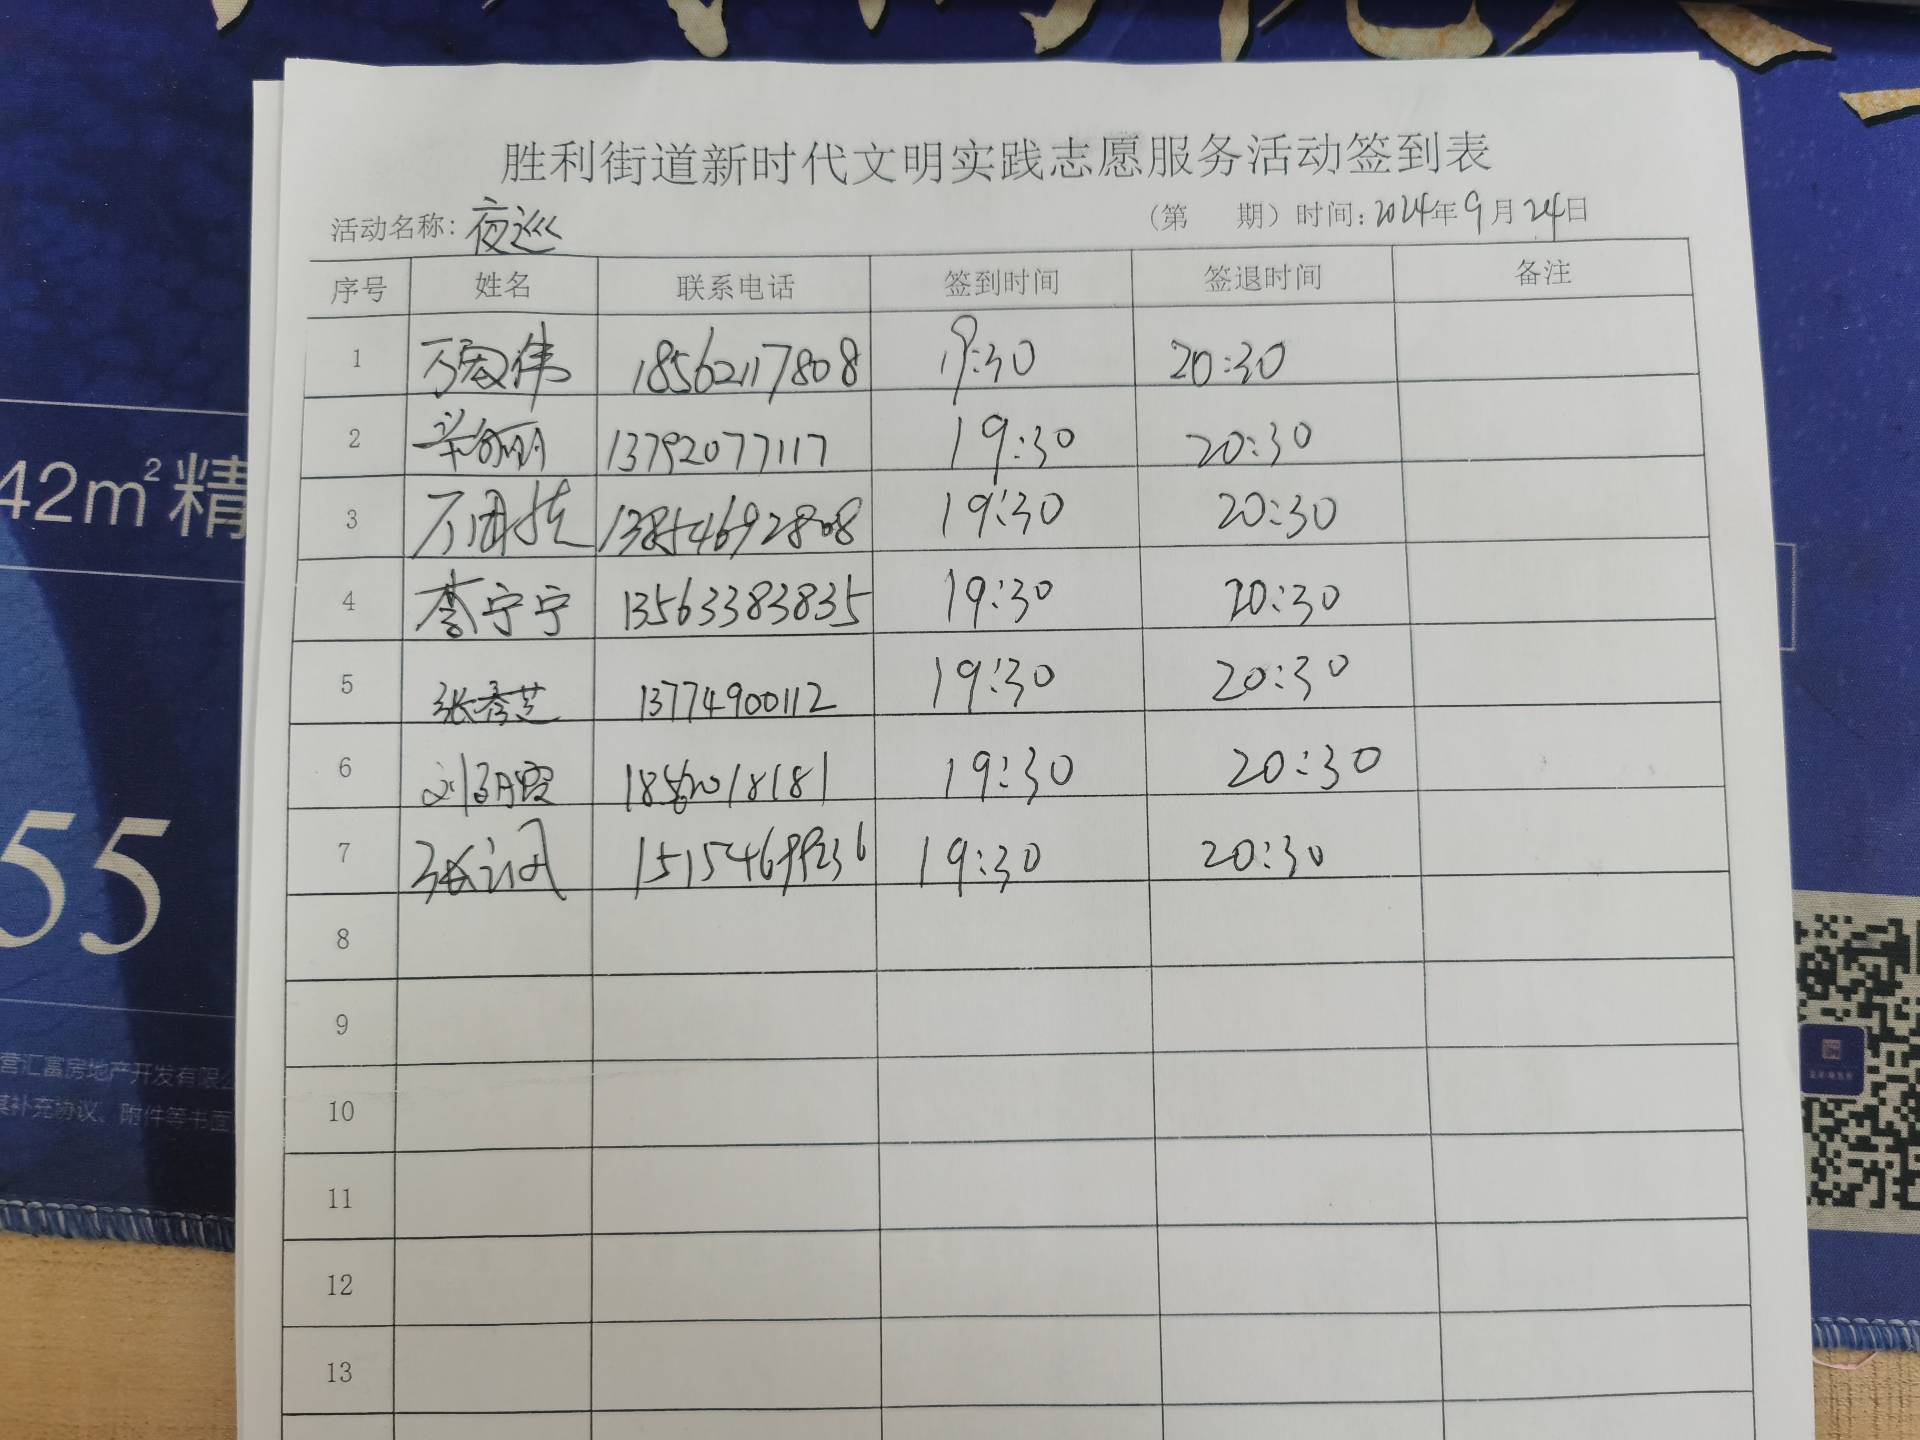 胜利街道新时代文明实践志愿服务活动签到表
活动名称：夜巡 (第 期) 时间：2024年9月24日
序号 姓名 联系电话 签到时间 签退时间 备注
1 万宏伟 18562117808 19:30 20:30
2 13792077117 19:30 20:30
3 万国 13854692808 19:30 20:30
4 李宁宁 13563383835 19:30 20:30
5 张秀芝 13774900112 19:30 20:30
6 刘 霞 19:30 20:30
7 张 19:30 20:30
8
9
10
11
12
13
42m²精
55
营汇富房地产开发有限公
补充协议、附件等书面